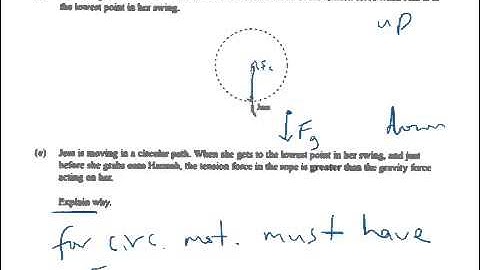 the lowest point in her swing.
up
Fc
Jess
Fg
down
(e) Jess is moving in a circular path. When she gets to the lowest point in her swing, and just
before she grabs onto Hannah, the tension force in the rope is greater than the gravity force
acting on her.
Explain why.
for circ. mot. must have